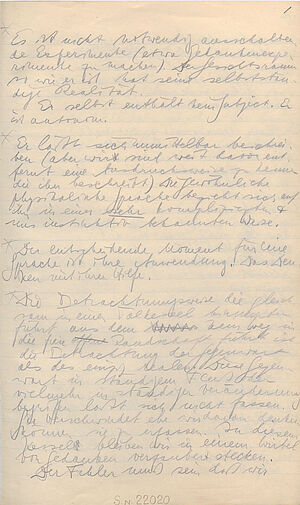 1
× Es ist nicht notwendig ausschaltende
Experimente (etwa Gedankenexperimente
zu machen). Der Gesichtsraum
so wie er ist hat seine selbststän-
dige Realität.
Er selbst enthält kein Subjekt. Er
ist autonom.
× Er läßt sich unmittelbar beschrei-
ben (aber wir sind weit davon ent-
fernt eine Ausdrucksweise zu kennen
die ihn beschreibt) Die gewöhnliche
physikalische Sprache bezieht sich auf
ihn in einer sehr komplizierten &
uns instinktiv bekannten Weise.
× Der entscheidende Moment für eine
Sprache ist ihre Anwendung. Das Den-
ken mit ihrer Hilfe.
× Die Betrachtungsweise die gleich-
sam in einen
führt aus dem kein Weg in
die freie Landschaft führt ist
die Betrachtung der Gegenwart
als des einzig Realen. Diese Gegen-
wart in ständigem Fluß oder
vielmehr in ständiger Veränderung
begriffen läßt sich nicht fassen.
Sie verschwindet ehe wir daran denken
können sie zu erfassen. In diesem
Kessel bleiben wir in einem Wirbel
von Gedanken verzaubert stecken.
Der Fehler muß sein, daß wir
S.N. 22020